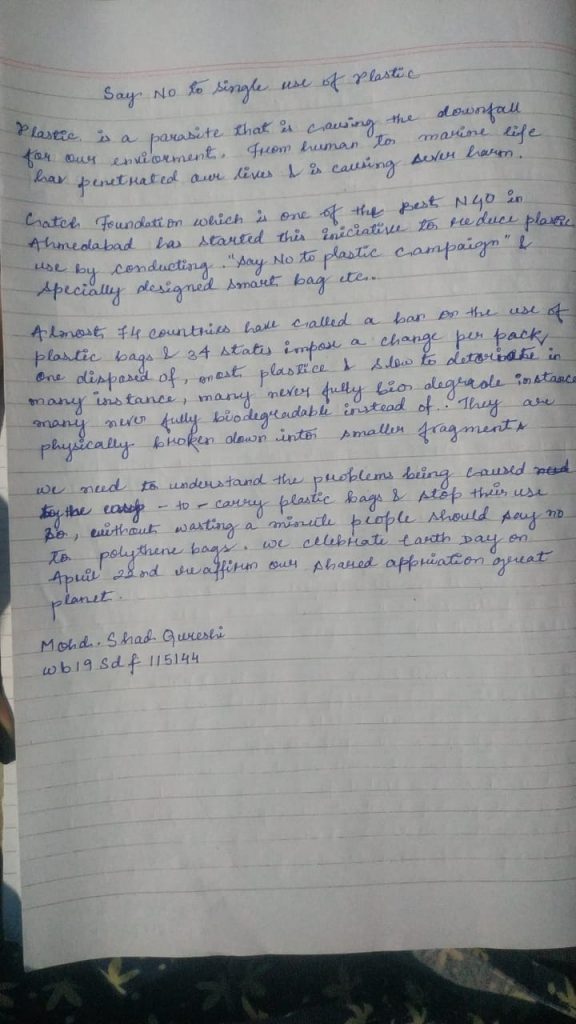 Say No to Single use of Plastic
Plastic is a parasite that is causing the downfall
for our enviorment. From human to marine life
has penetrated our lives & is causing sever harm.
Cratch Foundation which is one of the Best NGO in
Ahmedabad has started this iniciative to reduce plastic
use by conducting. "Say No to plastic campaign" &
specially designed smart bag etc..
Almost 74 countries have called a ban on the use of
plastic bags & 34 states impose a change per pack,
one disposed of, most plastice & slow to in
many instance, many never fully bio degrade instance
many never fully biodegradable instead of.. They are
physically broken down into smaller fragments
we need to understand the problems being caused
by the - to - carry plastic bags & stop their use
so, without wasting a minute people should say no
to polythene bags. we celebrate Earth Day on
April 22nd reaffirm our shared great
planet.
Mohd. Shad Qureshi
wb19 Sdf 115144